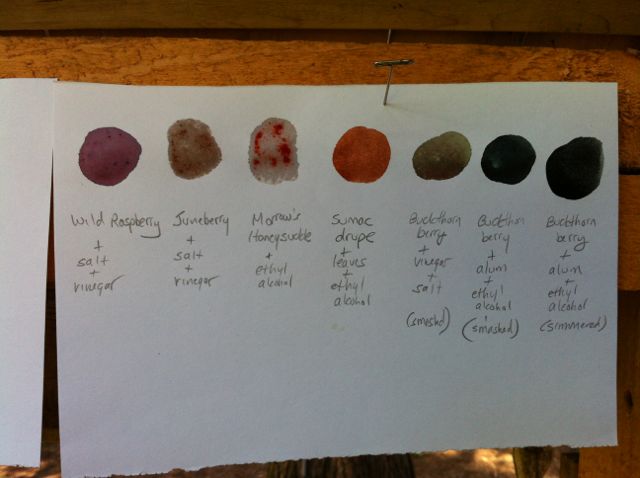 Wild Raspberry
+
salt
+
vinegar
Juneberry
+
salt
+
vinegar
Morrow's
Honeysuckle
+
ethyl
alcohol
Sumac
drupe
+
leaves
+
ethyl
alcohol
Buckthorn
berry
+
vinegar
+
salt
(smashed)
Buckthorn
berry
+
alum
+
ethyl
alcohol
(smashed)
Buckthorn
berry
+
alum
+
ethyl
alcohol
(simmered)